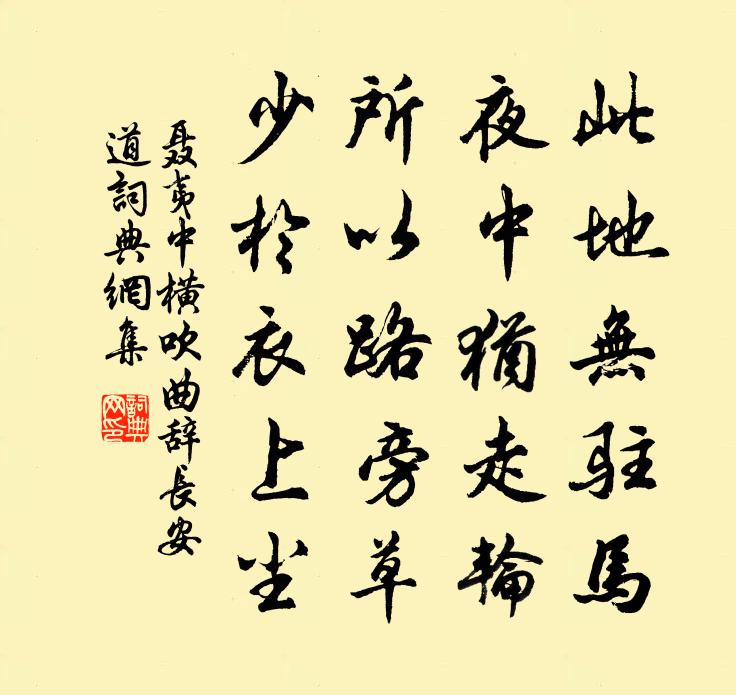 此地無駐馬
夜中猶走輪
所以路旁草
少於衣上尘
聂夷中橫吹曲辞長安
道詞典網集
詞典
网印